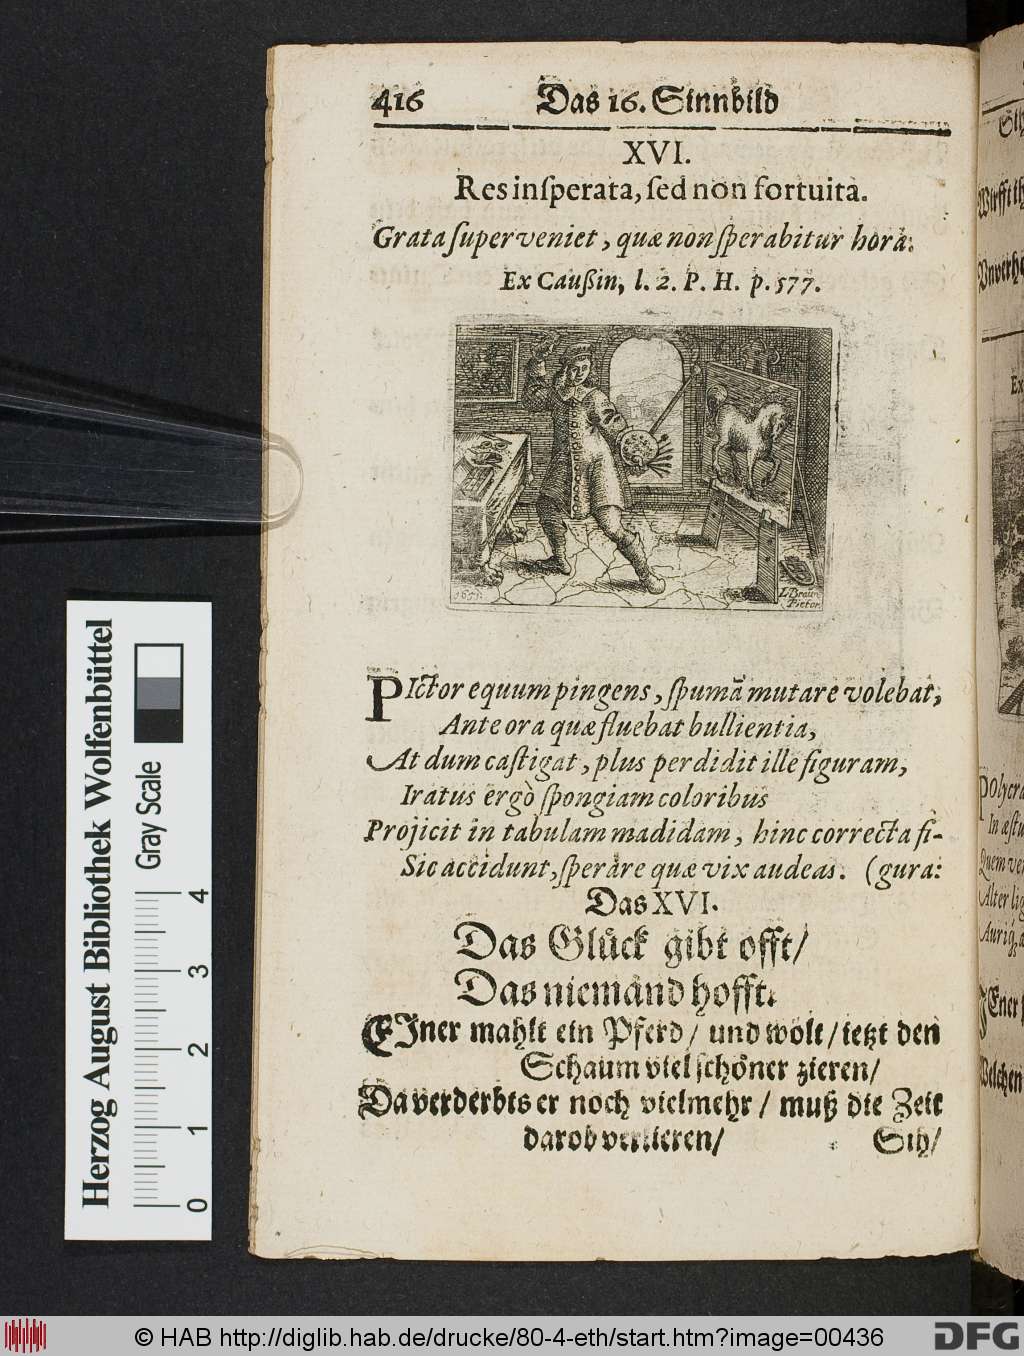 416 Das 16. Sinnbild
XVI.
Res inſperata, ſed non fortuita.
Grata ſuperveniet, quæ non ſperabitur hora.
Ex Caußin, l. 2. P. H. p. 577.
L. Braun
Pictor
PIctor equum pingens, ſpumã mutare volebat,
Ante ora quæ fluebat bullientia,
At dum caſtigat, plus perdidit ille figuram,
Iratus ergò ſpongiam coloribus
Projicit in tabulam madidam, hinc correcta fi-
Sic accidunt, ſperare quæ vix audeas. (gura:
Das XVI.
Das Glück gibt offt/
Das niemand hofft.
EJner mahlt ein Pferd/ und wolt/ ietzt den
Schaum viel ſchöner zieren/
Da verderbts er noch vielmehr/ muß die Zeit
darob verlieren/ Sih/
Wirfft
Ex
Polycra
Quem ver
Alter lig
JEner
Welchen
Herzog August Bibliothek Wolfenbüttel
Gray Scale
0 1 2 3 4
© HAB http://diglib.hab.de/drucke/80-4-eth/start.htm?image=00436
DFG